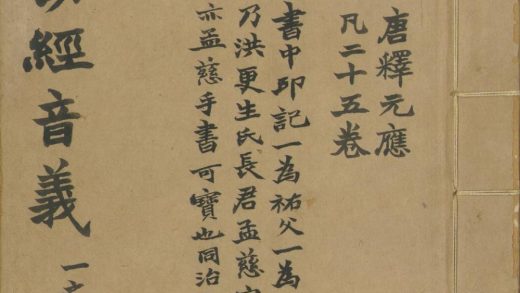 唐釋元應
凡二十五卷
書中印記一為祐父一為
乃洪更生氏長君孟慈
亦孟慈手書可寶也同治
經音義
一